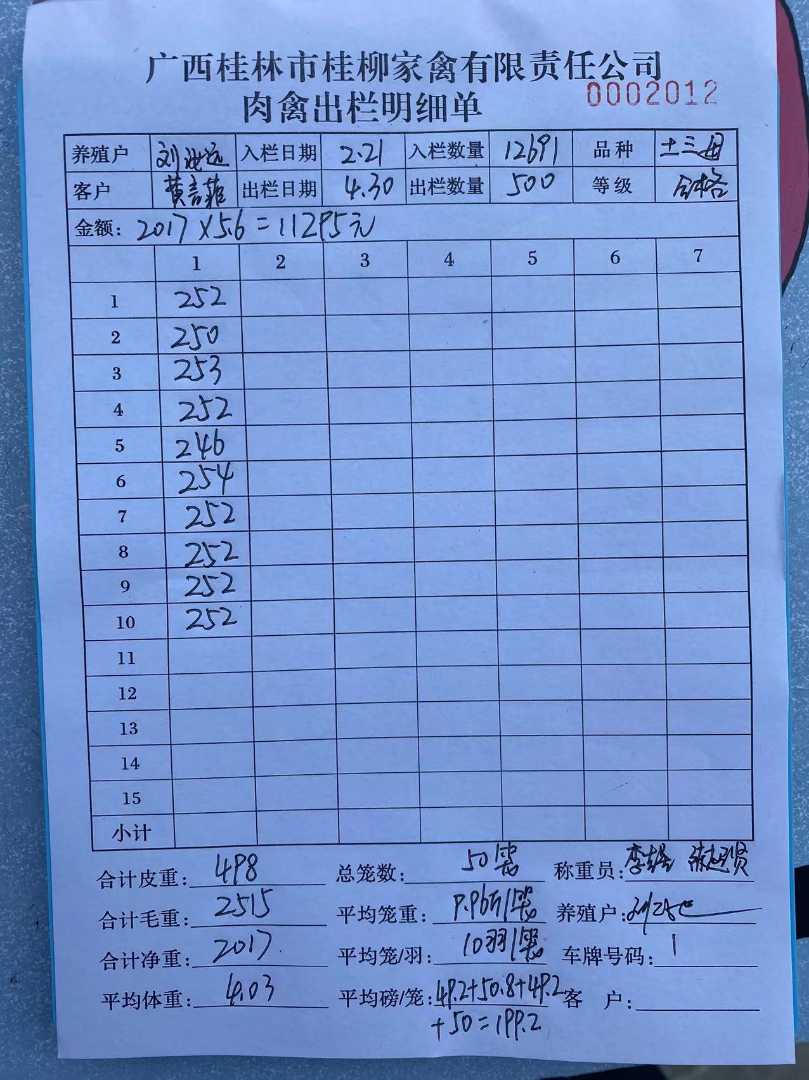 广西桂林市桂柳家禽有限责任公司
肉禽出栏明细单 0002012
养殖户 入栏日期 2.21 入栏数量 12691 品种 土三母
客户 出栏日期 4.30 出栏数量 500 等级 合格
金额: 2017×5.6=11295元
1 2 3 4 5 6 7
1 252
2 250
3 253
4 252
5 246
6 254
7 252
8 252
9 252
10 252
11
12
13
14
15
小计
合计皮重: 498 总笼数: 50笼 称重员:
合计毛重: 2515 平均笼重: 9.96斤/笼 养殖户:
合计净重: 2017 平均笼/羽: 10羽/笼 车牌号码: 1
平均体重: 4.03 平均磅/笼: 49.2+50.8+49.2 客 户:
+50=199.2